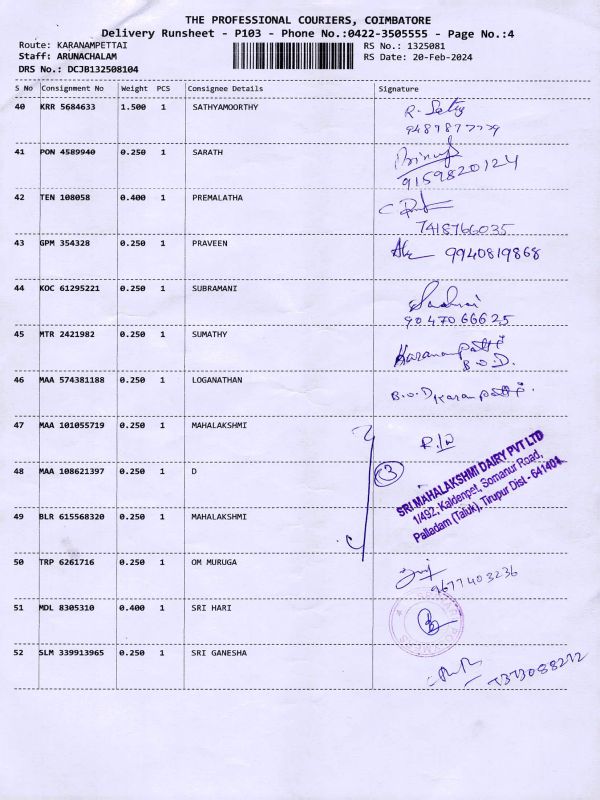 THE PROFESSIONAL COURIERS, COIMBATORE
Delivery Runsheet - P103 - Phone No.:0422-3505555 - Page No.:4
Route: KARANAMPETTAI RS No.: 1325081
Staff: ARUNACHALAM RS Date: 20-Feb-2024
DRS No.: DCJB132508104
S No Consignment No Weight PCS Consignee Details Signature
40 KRR 5684633 1.500 1 SATHYAMOORTHY R. Sathy
41 PON 4589940 0.250 1 SARATH
9159820124
42 TEN 108058 0.400 1 PREMALATHA
7418766035
43 GPM 354328 0.250 1 PRAVEEN 9940819868
44 KOC 61295221 0.250 1 SUBRAMANI
9047066625
45 MTR 2421982 0.250 1 SUMATHY Karanampatti
B.O.D.
46 MAA 574381188 0.250 1 LOGANATHAN B.O.D Karanpatti.
47 MAA 101055719 0.250 1 MAHALAKSHMI
48 MAA 108621397 0.250 1 D 3
SRI MAHALAKSHMI DAIRY PVT LTD
1/492, Kaldenpet, Somanur Road,
Palladam (Taluk), Tirupur Dist.- 641401.
49 BLR 615568320 0.250 1 MAHALAKSHMI
50 TRP 6261716 0.250 1 OM MURUGA
9677403236
51 MDL 8305310 0.400 1 SRI HARI
52 SLM 339913965 0.250 1 SRI GANESHA